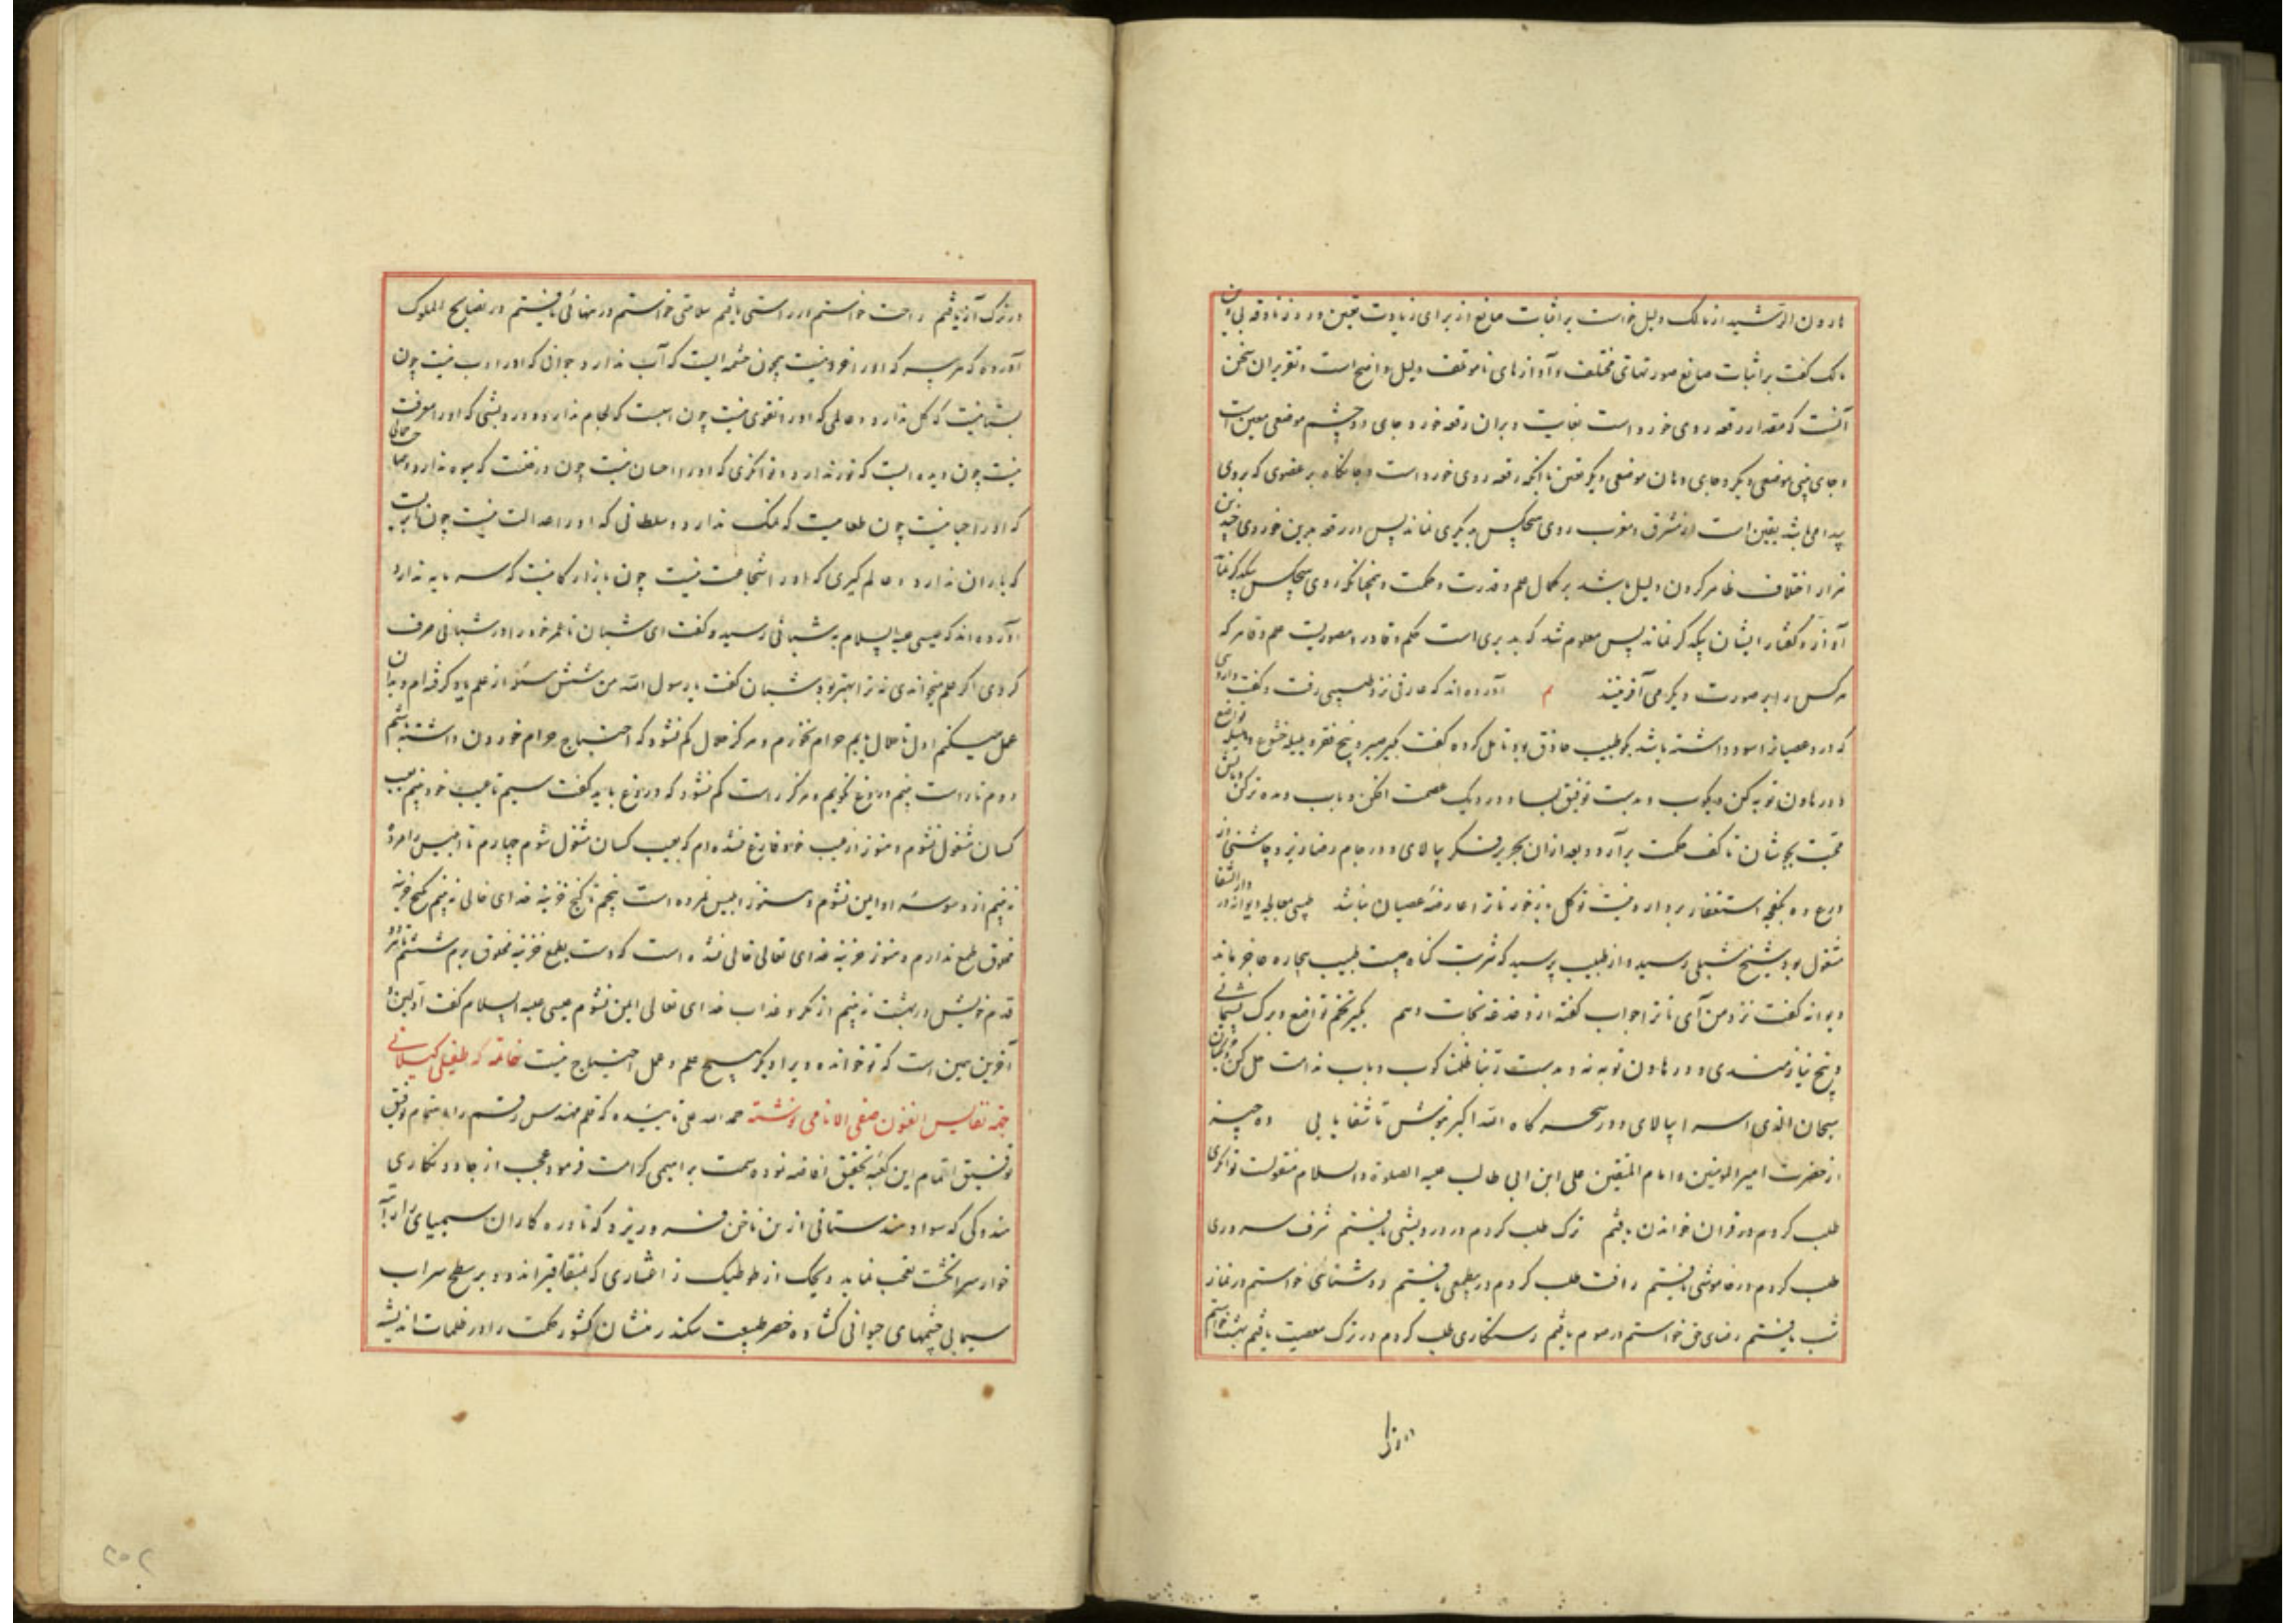 هارون الرشید از مالک دلیل خواست بر اثبات صانع از برای زیادت یقین و رد زنادقه بی دین
مالک گفت بر اثبات صانع صورتهای مختلف و آوازهای ناموتلف دلیل واضح است و تقریر ان سخن
آنست که مقدار رقعه روی خورد است بغایت و بران رقعه خورد جای دو چشم موضعی معین است
و جای بینی موضعی دیگر و جای دهان موضعی دیگر متعین با آنکه رقعه روی خورد است و جایگاه هر عضوی که بروی
پیدا می باشد یقین است از مشرق و مغرب روی هیچکس بدیگری نماند پس در رقعه بدین خوردی چندین
هزار اختلاف ظاهر کردن دلیل باشد بر کمال علم و قدرت و حکمت و همچنانکه روی هیچکس بیکدیگر نماند
آواز و گفتار ایشان بیکدیگر نماند پس معلوم شد که مدبری است حکیم و قادر و مصوریست علیم و قاهر که
هر کس را بر صورت دیگر می آفریند م آورده اند که عارفی نزد طبیبی رفت و گفت داروی
که درد عصیانرا سود داشته باشد بگو طبیب حاذق بود تامل کرده گفت بگیر صبر و بیخ فقر و هلیله خشوع و بلیله تواضع
و در هاون توبه کن و بکوب و بدست توفیق بسا و در دیک عصمت افکن و باب دیده ترکن و باتش
محبت بجوشان تا کف حکمت برآرد و بعد ازان بحریر شکر بپالای و در جام رضا ریز و چاشنی از
ورع ده بکفچه استغفار بردار و نیت توکل باز خور تا ترا عارضه عصیان نباشد طبیبی بمعالجه دیوانه در دار الشفا
مشغول بود شیخ شبلی رسید و از طبیب پرسید که شربت گناه چیست طبیب بیچاره عاجز ماند
دیوانه گفت نزد من آی تا ترا جواب گفته از دغدغه نجات دهم بگیر تخم تواضع و برگ پشیمانی
و بیخ نیازمندی و در هاون توبه نه و بدست ربنا ظلمنا کوب و باب ندامت حل کن
سبحان الذی اسرا بپالای و در سحرگاه الله اکبر بنوش تا شفا یابی ده چیز
از حضرت امیر المومنین و امام المتقین علی ابن ابی طالب علیه الصلوة والسلام منقولست توانگری
طلب کردم در قران خواندن یافتم ترک طلب کردم در درویشی یافتم شرف سروری
طلب کردم در خاموشی یافتم رافت طلب کردم در بیطمعی یافتم روشنائی خواستم در نماز
شب یافتم رضای حق خواستم در صوم یافتم رستگاری طلب کردم در ترک معصیت یافتم بهشت خواستم
در ترک
در ترک آز یافتم راحت خواستم در راستی یافتم سلامتی خواستم در تنهائی یافتم در نصایح الملوک
آورده که هر پسر که اورا خرد نیست همچون چشمه ایست که آب ندارد و جوانی که اورا ادب نیست چون
بستانیست که گل ندارد و عالمی که اورا تقوی نیست چون اسبست که لجام ندارد و درویشی که اورا معرفت
نیست چون دیده ایست که نور ندارد و توانگری که اورا احسان نیست چون درختست که میوه ندارد
که اورا حیا نیست چون طعامیست که نمک ندارد و سلطانی که اورا عدالت نیست چون ابریست
که باران ندارد و عالم گیری که اورا شجاعت نیست چون بازارگانیست که سرمایه ندارد
آورده اند که عیسی علیه السلام به شبانی رسید و گفت ای شبان تا عمر خود را در شبانی صرف
کردی اگر علم میخواندی نه ترا بهتر بود شبان گفت یا رسول الله من شش مسئله از علم یاد گرفته ام و بدان
عمل میکنم اول تا حلال یابم حرام نخورم و هرگز حلال کم نشود که احتیاج حرام خوردن داشته باشم
دوم تا راست بینم دروغ نگویم و هرگز راست کم نشود که دروغ باید گفت سیم تا عیب خود بینم بعیب
کسان مشغول نشوم و هنوز از عیب خود فارغ نشده ام که بعیب کسان مشغول شوم چهارم تا ابلیس را مرده
نه بینم از وسوسه او ایمن نشوم و هنوز ابلیس نمرده است پنجم تا گنج خزینه خدای خالی نه بینم بگنج خزینه
مخلوق طمع ندارم و هنوز خزینه خدای تعالی خالی نشده است که دست بطمع خزینه مخلوق برم ششم تا هر دو
قدم خویش در بهشت نه بینم از مکر و عذاب خدای تعالی ایمن نشوم عیسی علیه السلام گفت
آخرین همین است که تو خوانده و ترا دیگر هیچ علم و عمل احتیاج نیست خاتمه که طبعی گیلانی
جهة نفایس الفنون صفی الانامی نوشته حمد الله علی تائیده که قلم مهندس رقم را به اختتام توفیق
توفیق اتمام این کعبه تحقیق افاضه نوده سمت براهیمی کرامت فرمود عجب از جادو نگاری
هندوکی که سواد هندستانی از بن ناخن فرو ریزد که نادره کاران سیمیای را
خوار سر انگشت تعجب نماید و
سیمابی چشمهای حیوانی گشاده خضر طبیعت سکندر منشان کشور حکمت را در ظلمات اندیشه
۲۵۲